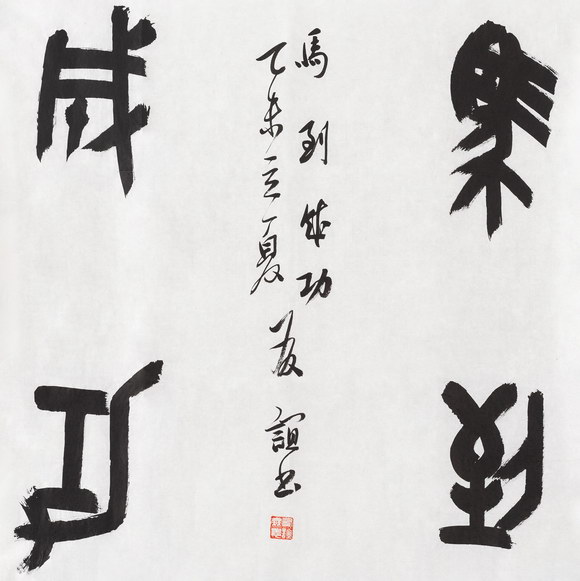 馬到
成功
馬到成功
乙未立夏友誼書